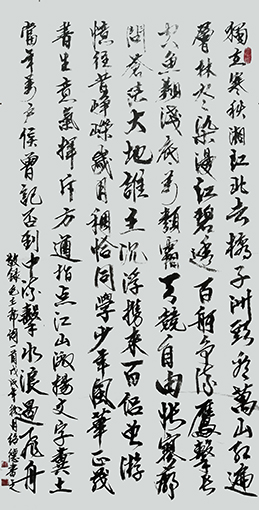 獨立寒秋湘江北去橘子洲頭看萬山紅遍
層林盡染漫江碧透百舸爭流鷹擊長
空魚翔淺底萬類霜天競自由悵寥廓
問蒼茫大地誰主沉浮攜來百侶曾游
憶往昔崢嶸歲月稠恰同學少年風華正茂
書生意氣揮斥方遒指点江山激揚文字糞土
當年萬户侯曾記否到中流擊水浪遏飛舟
敬録毛主席詞一首戊戌年秋月德書